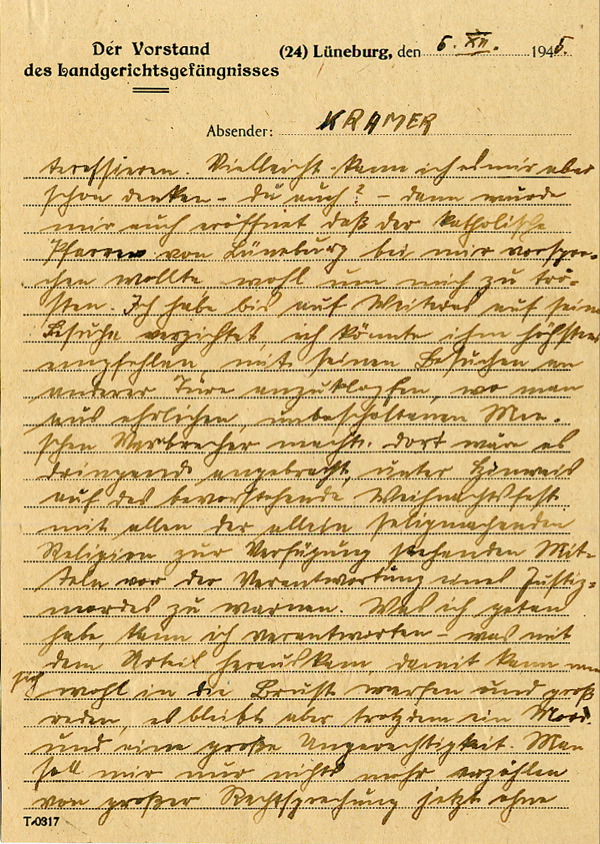 Der Vorstand
des Landgerichtsgefängnisses
(24) Lüneburg, den 6. XII. 1945.
Absender: KRAMER
teressieren. Vielleicht kann ich es mir aber
schon denken – du auch? – dann wurde
mir auch eröffnet daß der katholische
Pfarrer von Lüneburg bei mir vorspre-
chen wollte, wohl um mich zu trö-
sten. Ich habe bis auf Weiteres auf seine
Besuche verzichtet, ich könnte ihm höchstens
empfehlen, mit seinen Besuchen an
anderer Türe anzuklopfen, wo man
aus ehrlichen, unbescholtenen Men-
schen Verbrecher macht. Dort wäre es
dringend angebracht, unter Hinweis
auf das bevorstehende Weihnachtsfest
mit allen der allein seligmachenden
Religion zur Verfügung stehenden Mit-
teln vor der Verantwortung eines Justiz-
mordes zu warnen. Was ich getan
habe, kann ich verantworten – was mit
dem Urteil herauskam, damit kann man
sich wohl in die Brust werfen und groß
reden, es bleibt aber trotzdem ein Mord
und eine große Ungerechtigkeit. Man
soll mir nur nichts mehr erzählen
von großer Rechtsprechung jetzt ohne
T-0317